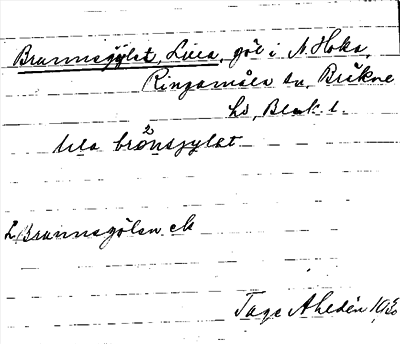 Brunnsgylet, Lilla, göl i N. Hoka,
Ringamåla sn, Bräkne
hd, Blek. l.
lila brönsgylet
L. Brunnsgölen ek
Tage Ahldén 1930